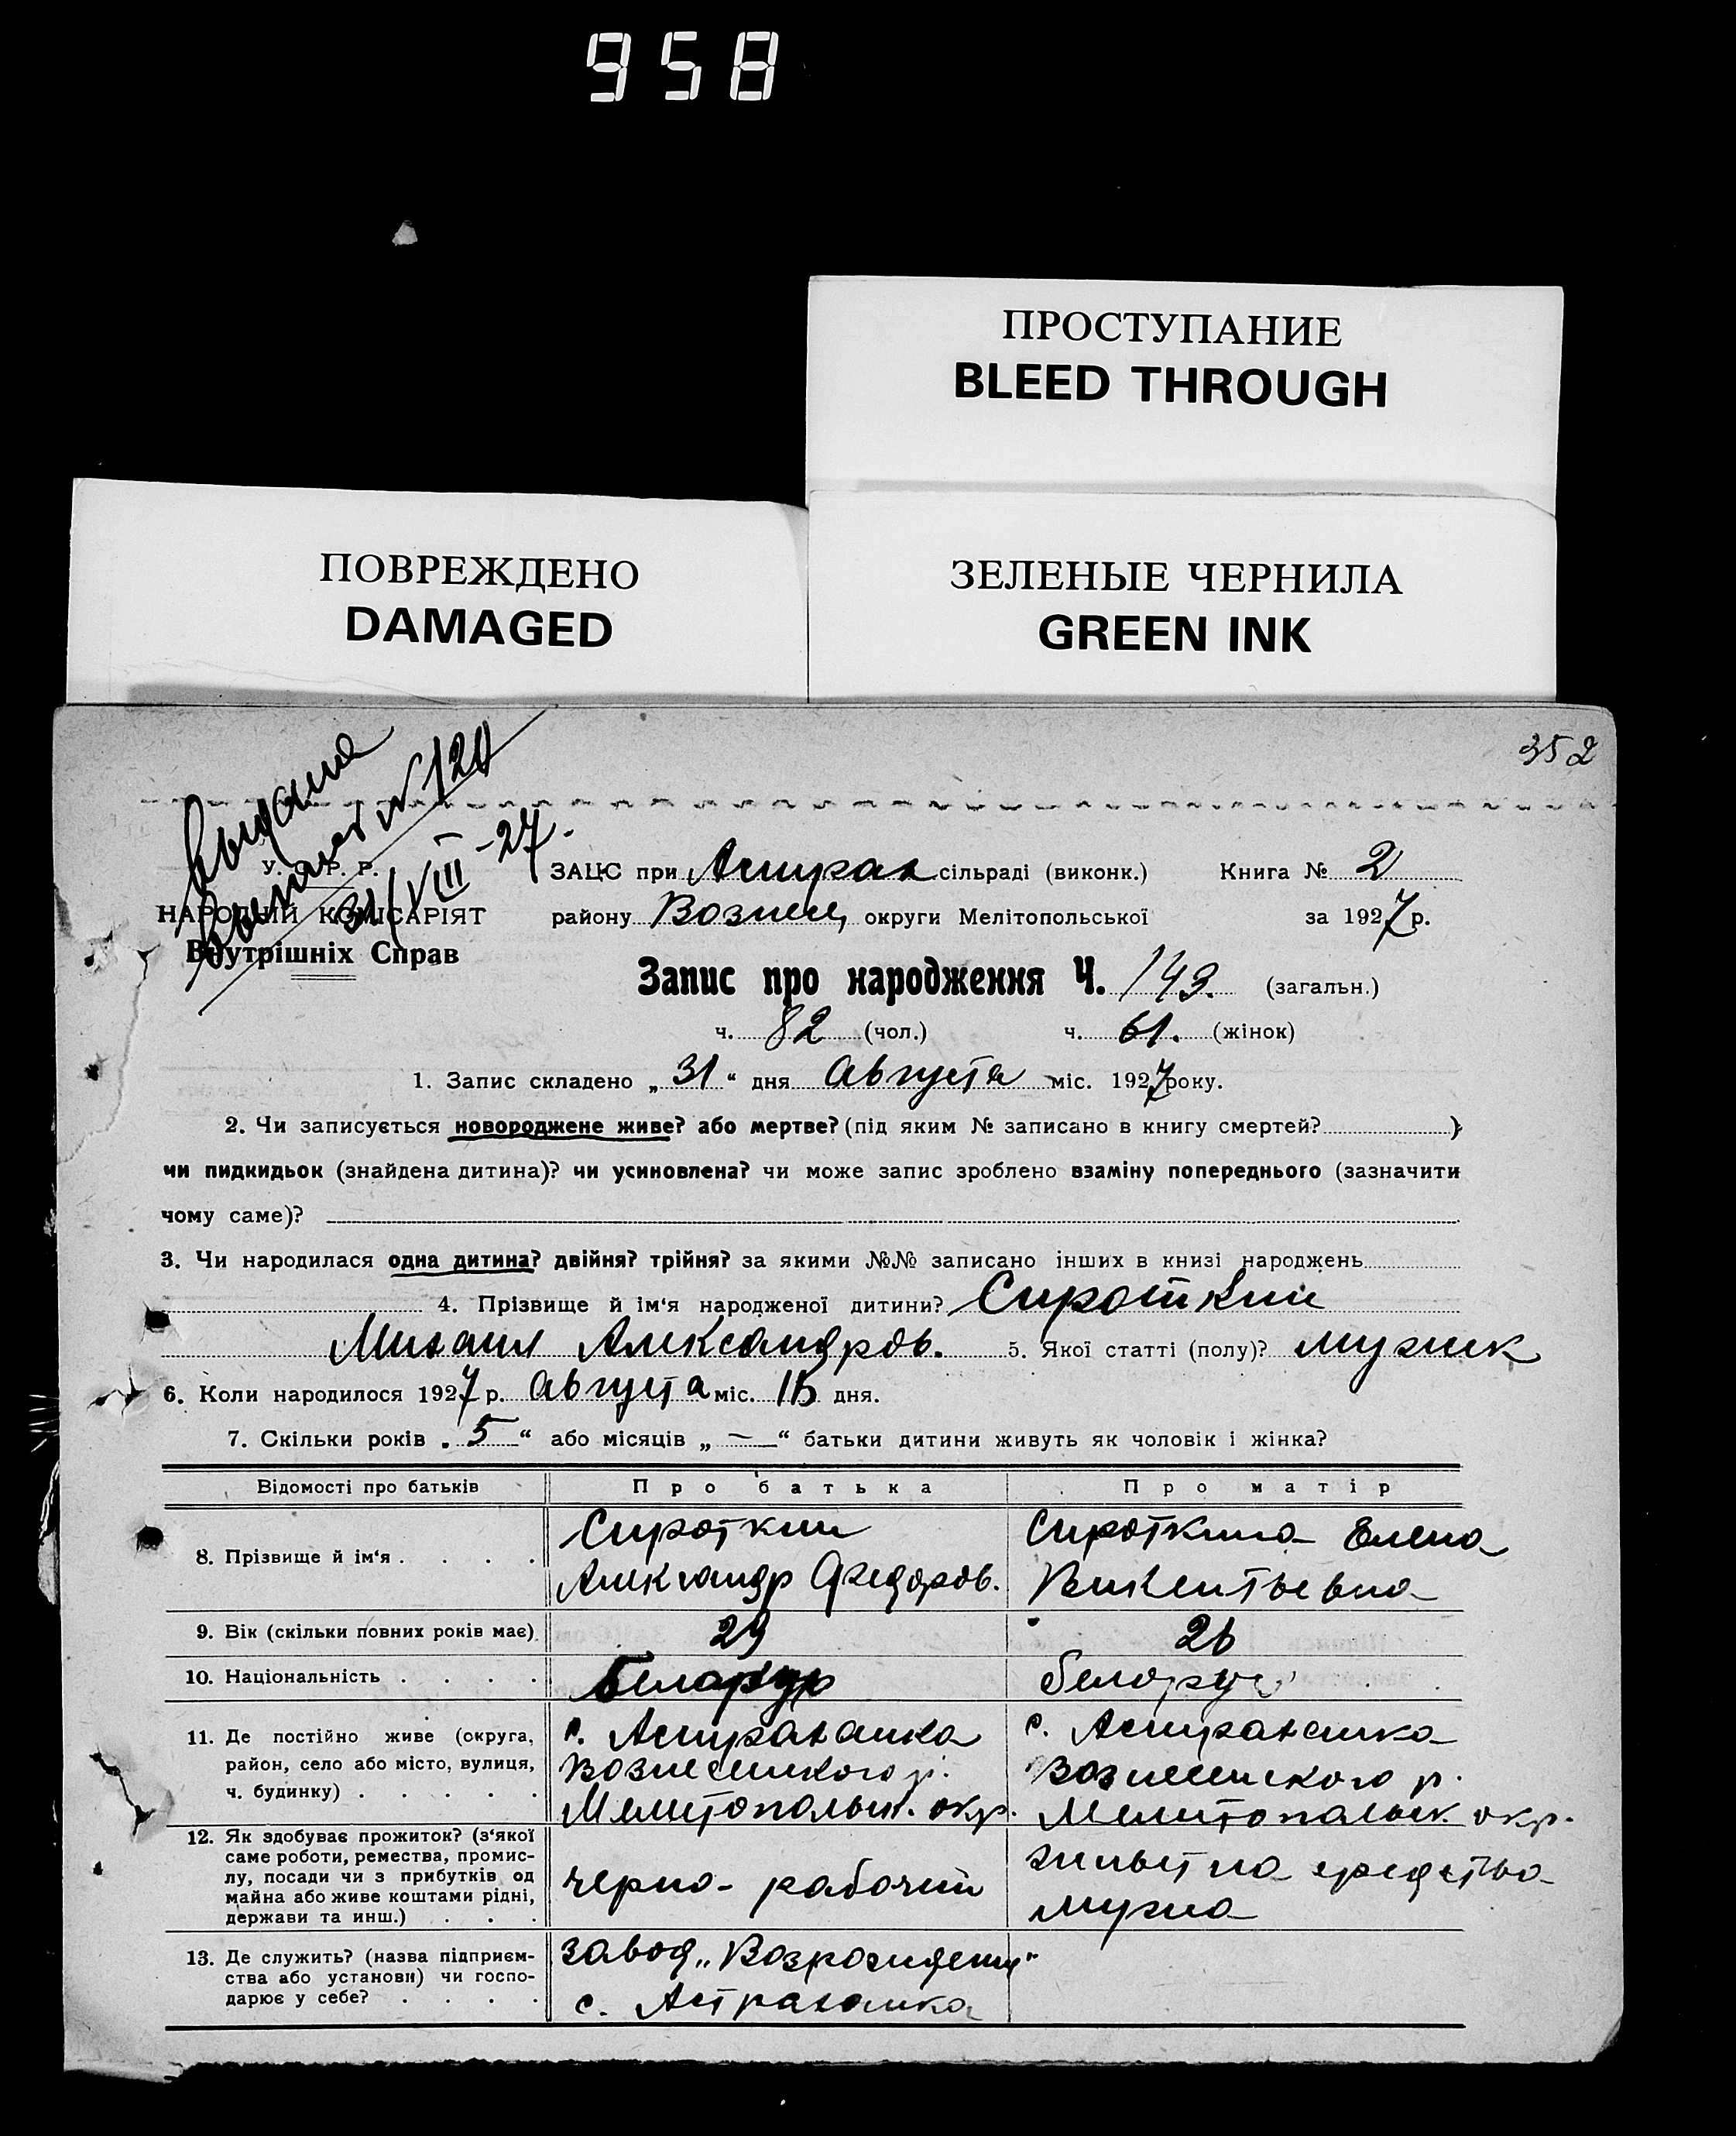 958
ПРОСТУПАНИЕ
BLEED THROUGH
ПОВРЕЖДЕНО
DAMAGED
ЗЕЛЕНЫЕ ЧЕРНИЛА
GREEN INK
352
Выдана
выпись №120
31/VIII-27.
У. Р. Р.
НАРОДНІЙ КОМІСАРІЯТ
Внутрішніх Справ
ЗАЦС при Астрах сільраді (виконк.) Книга № 2
району Вознесен, округи Мелітопольської за 1927 р.
Запис про народження Ч. 143. (загальн.)
ч. 82 (чол.) ч. 61. (жінок)
1. Запис складено „ 31 “ дня Августа міс. 1927 року.
2. Чи записується новороджене живе? або мертве? (під яким № записано в книгу смертей? )
чи пидкидьок (знайдена дитина)? чи усиновлена? чи може запис зроблено взаміну попереднього (зазначити
чому саме)?
3. Чи народилася одна дитина? двійня? трійня? за якими №№ записано інших в книзі народжень
4. Прізвище й ім‘я народженої дитини? Сироткин
Михаил Александров. 5. Якої статті (полу)? мужск
6. Коли народилося 1927 р. Августа міс. 15 дня.
7. Скільки років „ 5 “ або місяців „ — “ батьки дитини живуть як чоловік і жінка?
Відомості про батьків Про батька Про матір
8. Прізвище й ім‘я . . . . Сироткин Сироткина Елена
Александр Федоров. Викентьевна
9. Вік (скільки повних років має) 29 26
10. Національність . . . . Беларус белорус
11. Де постійно живе (округа, с. Астраханка с. Астраханка
район, село або місто, вулиця, Вознесенского р. Вознесенского р.
ч. будинку) . . . . . Мелитопольск. окр. Мелитопольск. окр.
12. Як здобуває прожиток? (з‘якої
саме роботи, ремества, промис- живет на средства
лу, посади чи з прибутків од черно-рабочий
майна або живе коштами рідні, мужа
держави та инш.) . . .
13. Де служить? (назва підприєм- завод „Возрождение“
ства або установи) чи госпо-
дарює у себе? . . . . с. Астраханка